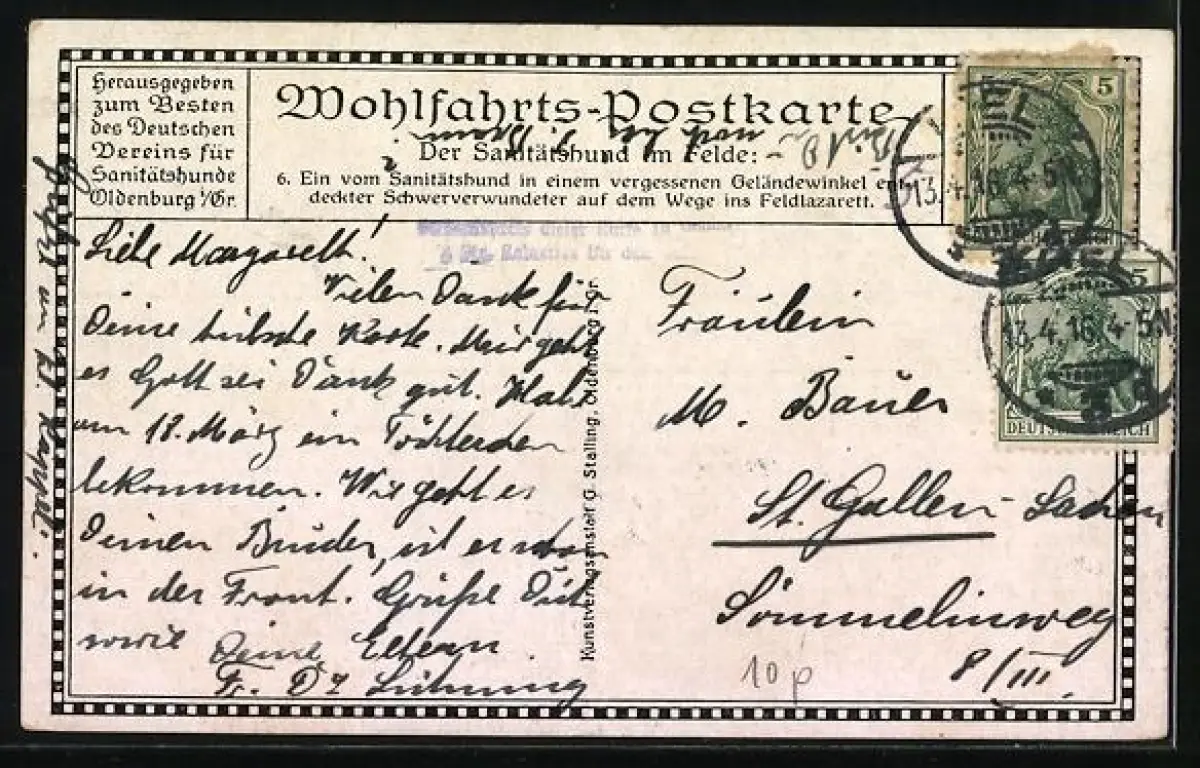 Herausgegeben
zum Besten
des Deutschen
Vereins für
Sanitätshunde
Oldenburg i/Gr.
Wohlfahrts-Postkarte
Der Sanitätshund im Felde:
6. Ein vom Sanitätshund in einem vergessenen Geländewinkel ent-
deckter Schwerverwundeter auf dem Wege ins Feldlazarett.
Liebe Margareth!
Vielen Dank für
Deine hübsche Karte. Mir geht
es Gott sei Dank gut. Habe
am 18. März ein Töchterchen
bekommen. Wie geht es
Deinen Bruder, ist er
in der Front! Grüße Dich
sowie Deine Eltern
Fr. Dr
Kunstverlagsanstalt G. Stalling, Oldenburg i. Gr.
Fräulein
M. Bauer
St. Gallen - Lachen
Sömmeliweg
8/III.
10 p
5
13.4.16.4-5N
5
DEUTSCHES REICH
KIEL
13.4.16.4-5N